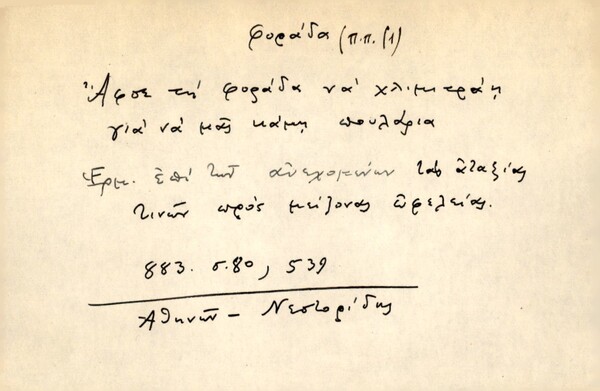 φοράδα (π.π. 51)
Ἄφσε τή φοράδα νά χλιμιτράῃ
γιά νά μᾶς κάμῃ πουλάρια
Ἑρμ. ἐπί τῶν ἀνεχομένων τάς ἀταξίας
τινῶν πρός μείζονας ὠφελείας.
883. σ.80, 539
Ἀθηνῶν - Νεστορίδης